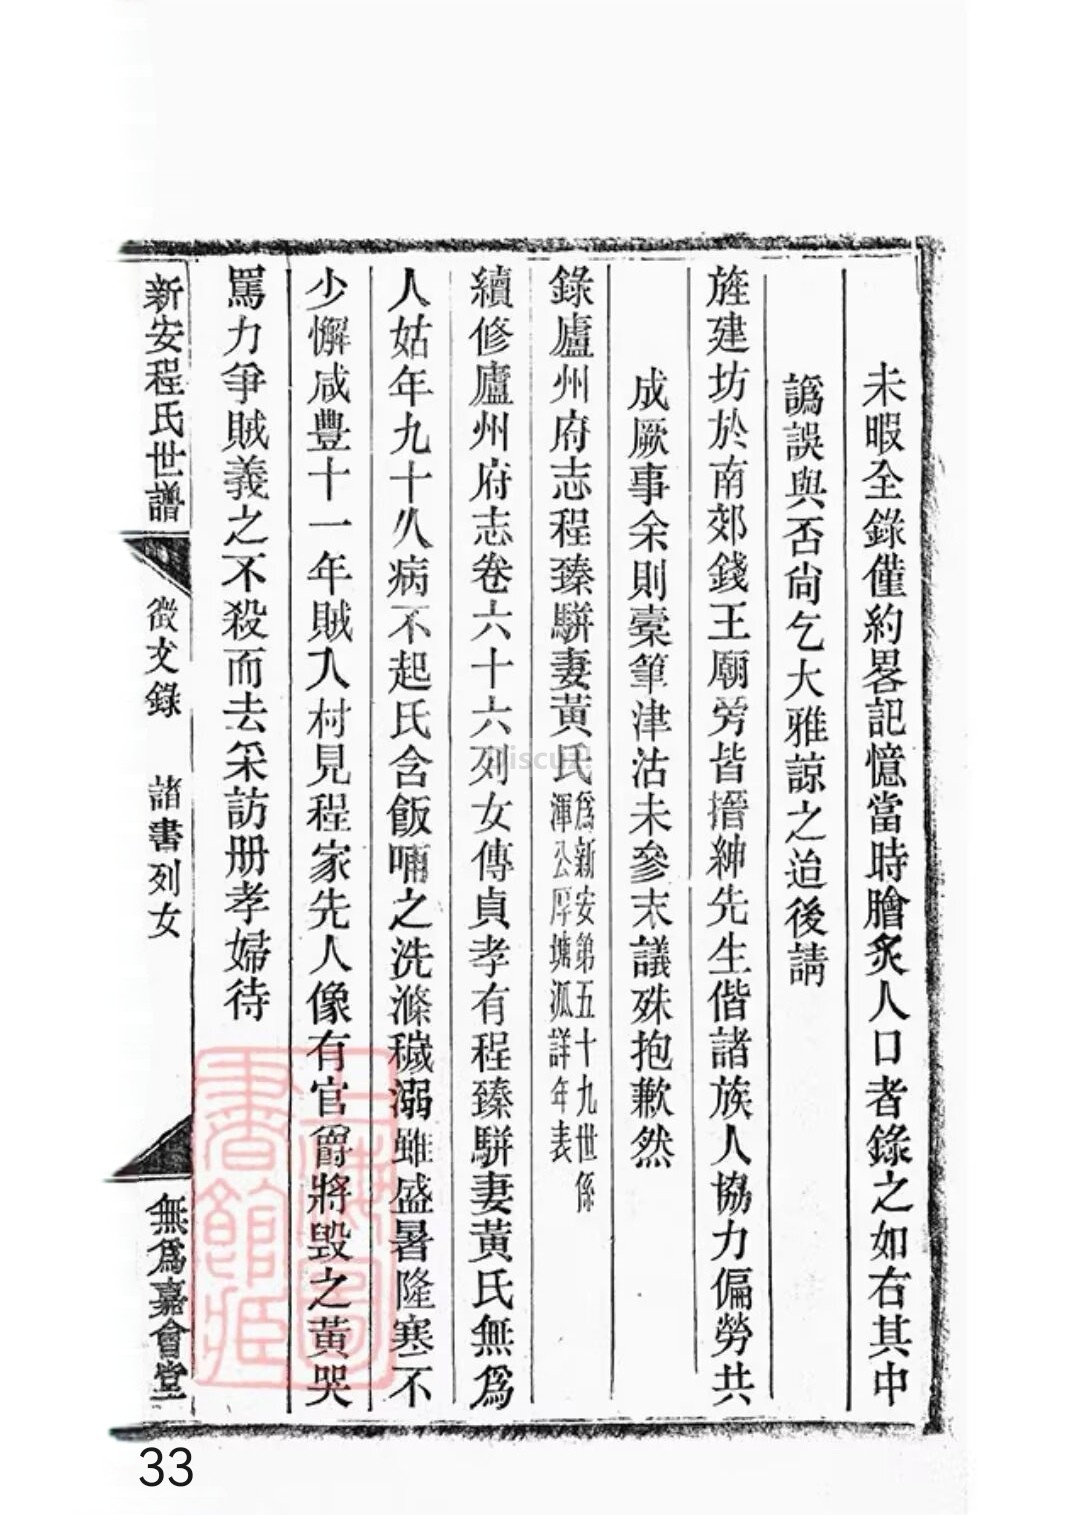 未暇全錄僅約畧記憶當時膾炙人口者錄之如右其中
譌誤與否尙乞大雅諒之迨後請
旌建坊於南郊錢王廟旁皆搢紳先生偕諸族人協力偏勞共
成厥事余則橐筆津沽未參末議殊抱歉然
錄廬州府志程臻駢妻黃氏
爲新安第五十九世係
渾公厚塘派詳年表
續修廬州府志卷六十六列女傳貞孝有程臻駢妻黃氏無爲
人姑年九十久病不起氏含飯哺之洗滌穢溺雖盛暑隆寒不
少懈咸豐十一年賊入村見程家先人像有官爵將毀之黃哭
罵力爭賊義之不殺而去采訪册孝婦待
新安程氏世譜
徵文錄
諸書列女
無爲嘉會堂
上海圖書館藏
33